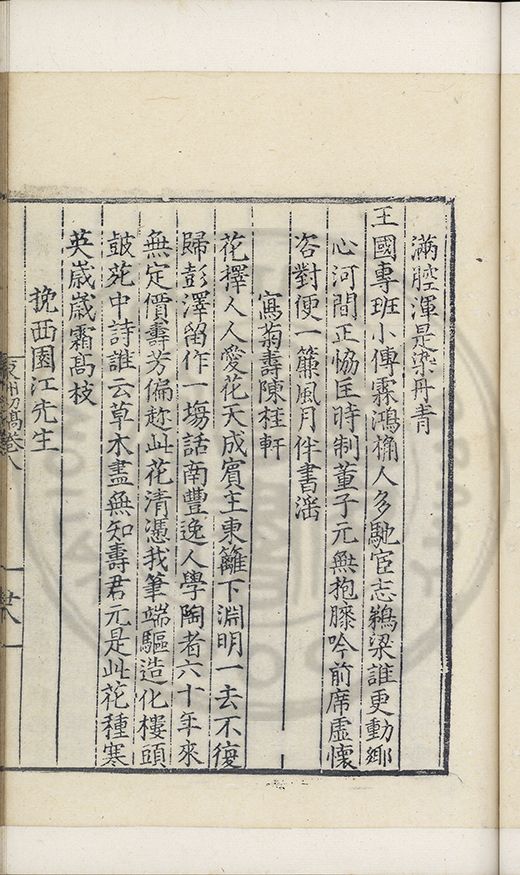 滿腔渾是染丹青
王國專班小傅霖鴻桷人多馳宦志鵜梁誰更動鄉
心河間正恊匡時制董子元無抱膝吟前席虛懷
咨對便一簾風月伴書滛
寫菊壽陳桂軒
花擇人人愛花天成賓主東籬下淵明一去不復
歸彭澤留作一塲話南豐逸人學陶者六十年來
無定價壽芳偏趂此花清憑我筆端驅造化樓頭
皷中詩誰云草木盡無知壽君元是此花種寒
英歲歲霜髙枝
挽西園江先生
稿卷八